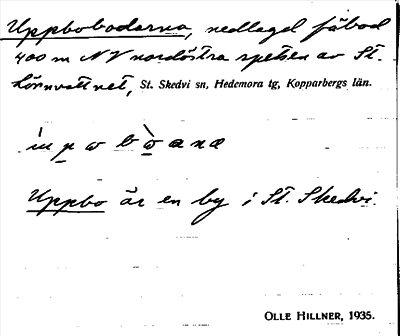 Uppbobodarna, nedlagd fäbod
400 m NV nordöstra spetsen av St.
Hörnvattnet, St. Skedvi sn, Hedemora tg, Kopparbergs län.
Uppbo är en by i St. Skedvi.
OLLE HILLNER, 1935.